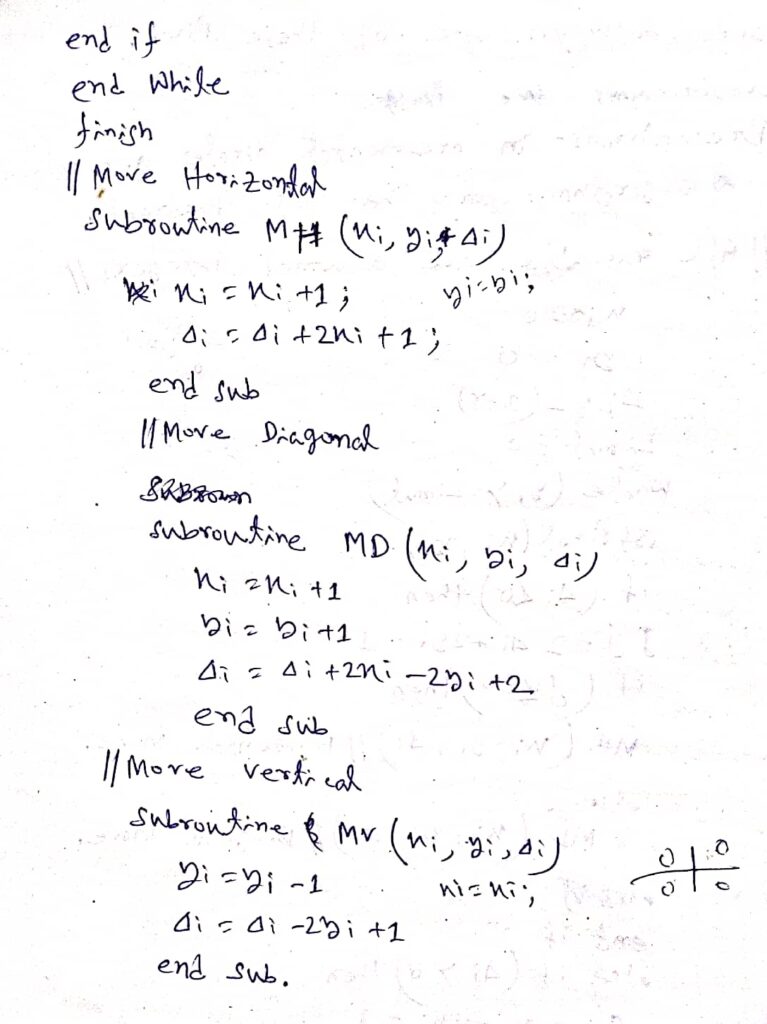 end if
end While
finish
// Move Horizontal
Subroutine MH (xi, yi, Δi)
xi = xi +1; yi=yi;
Δi = Δi +2xi +1;
end sub
// Move Diagonal
subroutine MD (xi, yi, Δi)
xi = xi +1
yi = yi +1
Δi = Δi +2xi -2yi +2
end sub
// Move vertical
Subroutine Mv (xi, yi, Δi)
yi = yi -1 xi=xi;
Δi = Δi -2yi +1
end sub.
0 0
0 0